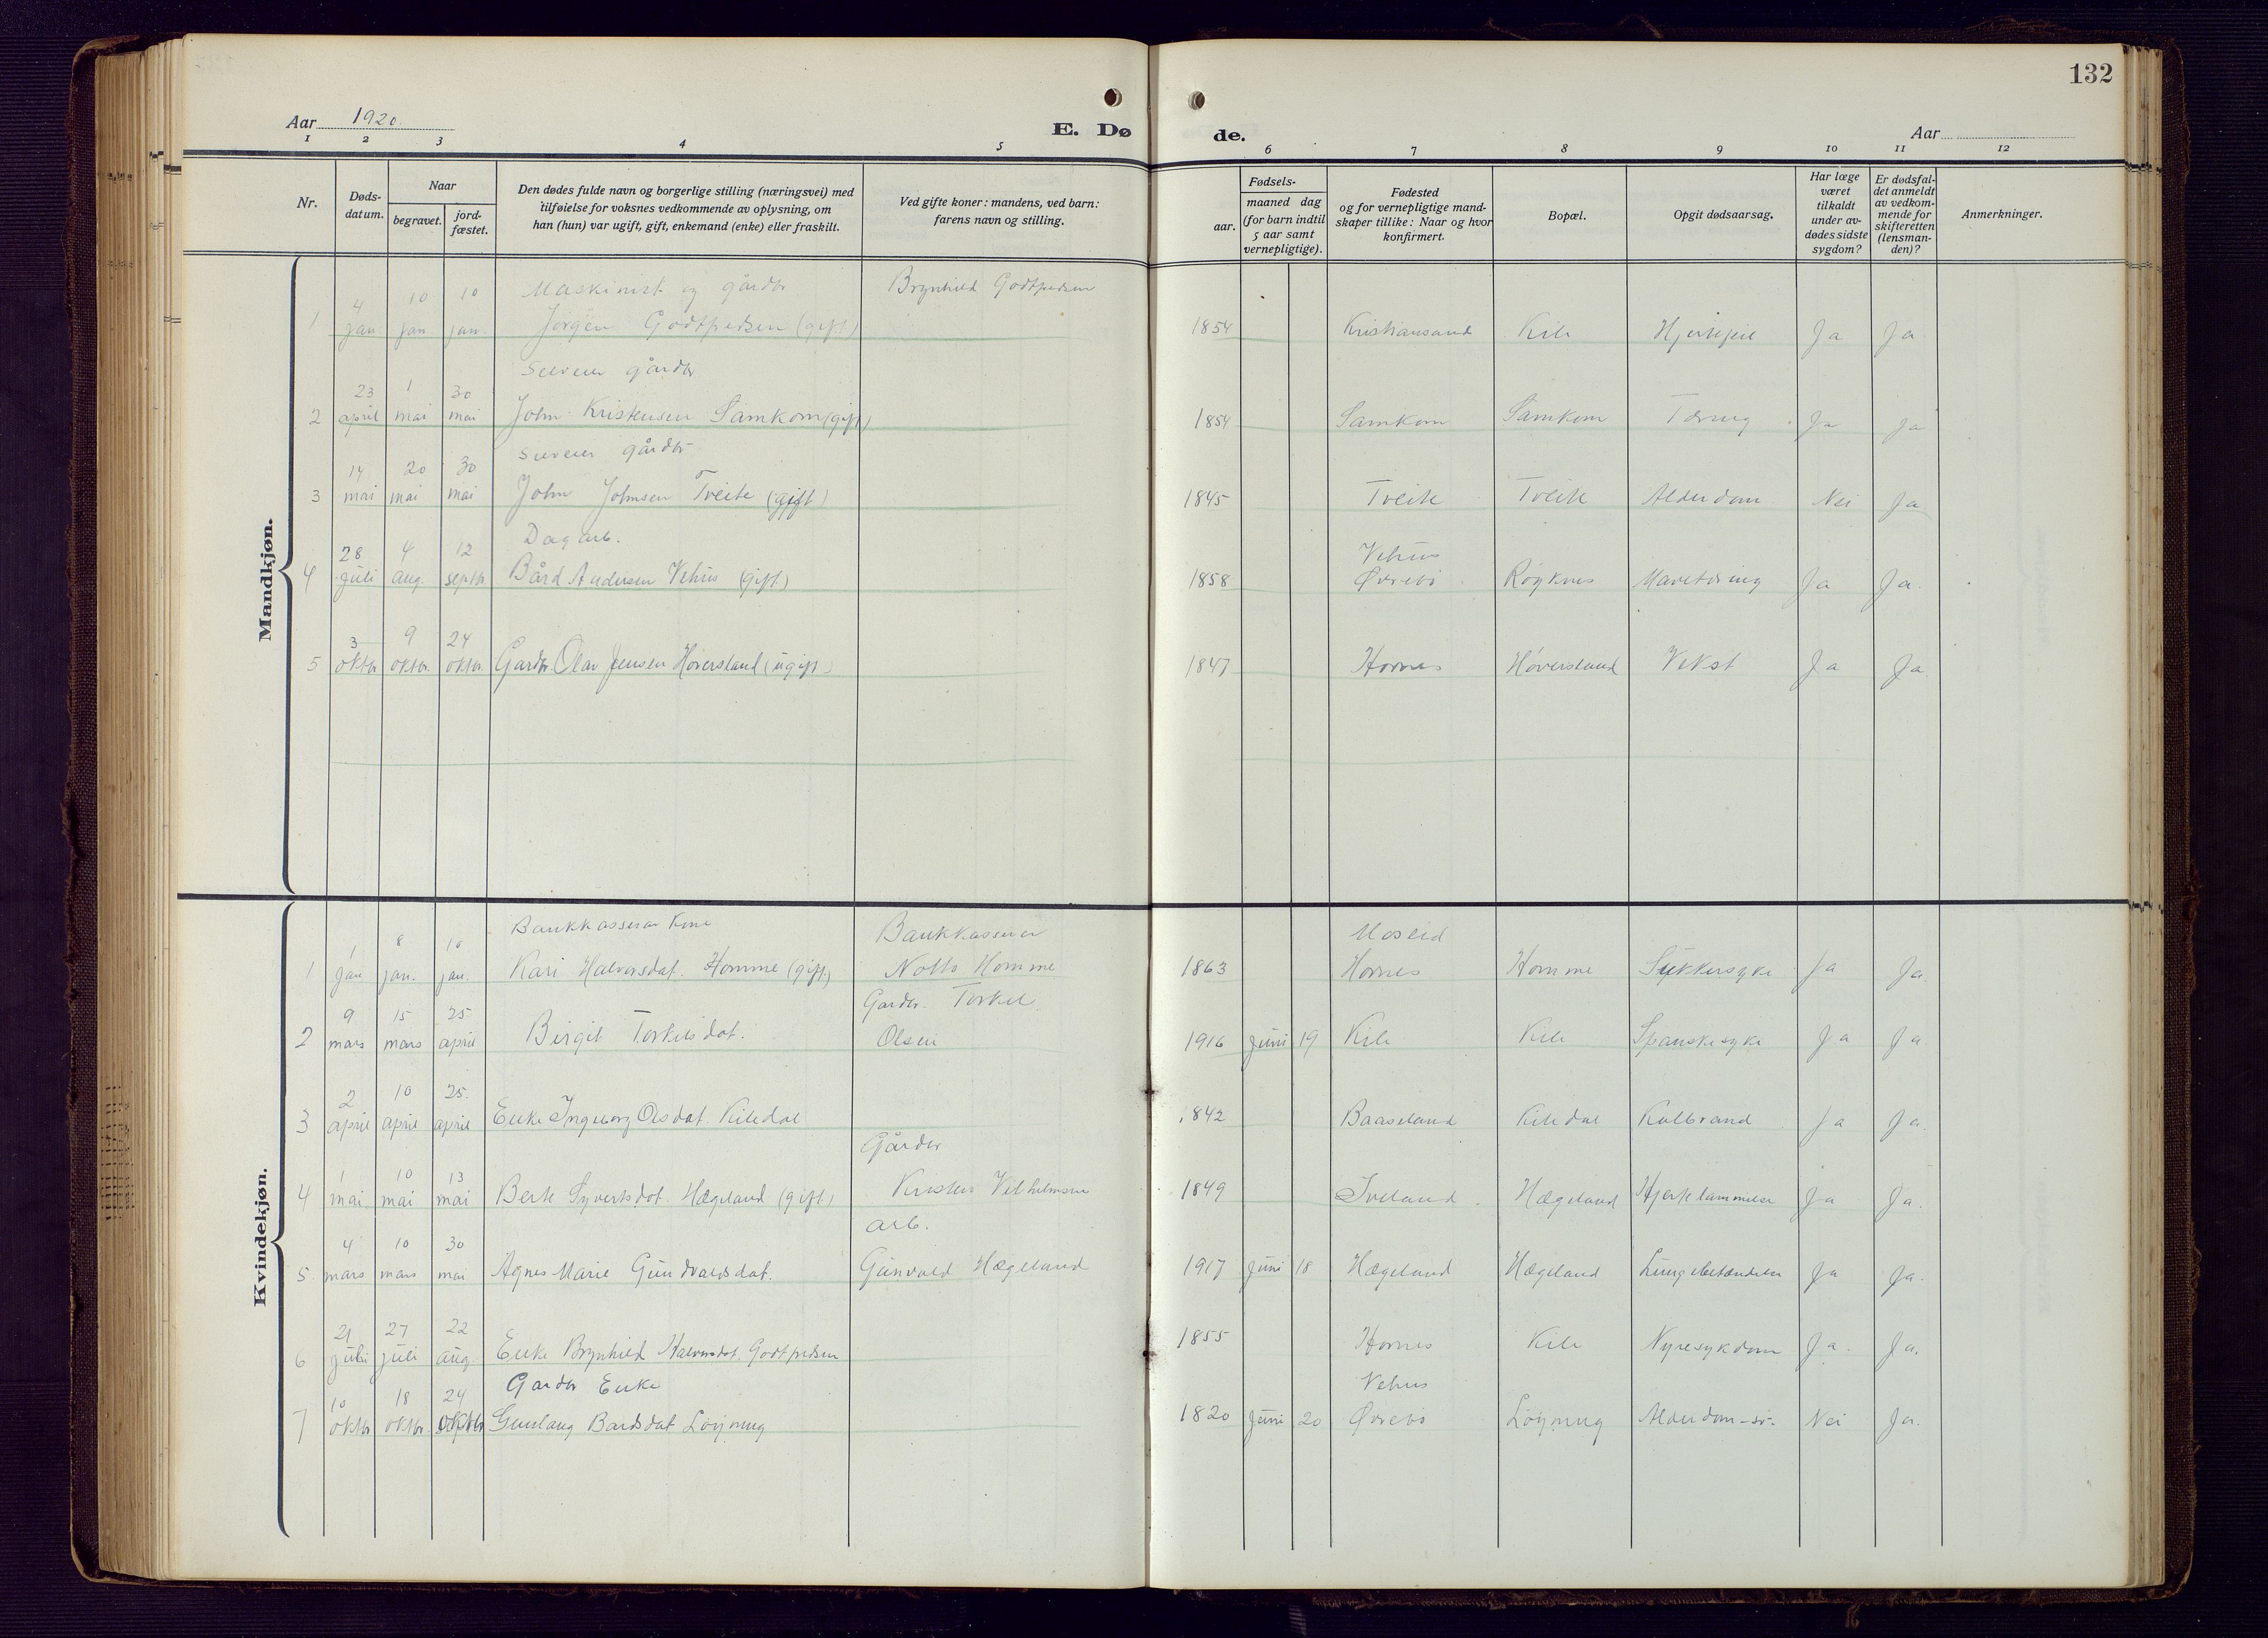 132
Aar 1920.
E. Dø
de.
Aar
1 2 3 4 5 6 7 8 9 10 11 12
Nr.
Døds-
datum.
Naar
begravet.
jord-
fæstet.
Den dødes fulde navn og borgerlige stilling (næringsvei) med
tilføielse for voksnes vedkommende av oplysning, om
han (hun) var ugift, gift, enkemand (enke) eller fraskilt.
Ved gifte koner: mandens, ved barn:
farens navn og stilling.
Fødsels-
aar.
maaned dag
(for barn indtil
5 aar samt
vernepligtige).
Fødested
og for vernepligtige mand-
skaper tillike: Naar og hvor
konfirmert.
Bopæl.
Opgit dødsaarsag.
Har læge
været
tilkaldt
under av-
dødes sidste
sygdom?
Er dødsfal-
det anmeldt
av vedkom-
mende for
skifteretten
(lensman-
den)?
Anmerkninger.
Mandkjøn.
4 10 10 Maskinist og gårdbr Brynhild Godtfredsen
1 jan. jan. jan. Jörgen Godtfredsen (gift) 1854 Kristiansand Kile Hjertefeil Ja Ja
Selveier gårdbr
23 1 30
2 april mai mai John Kristensen Samkom (gift) 1854 Samkom Samkom Tæring Ja Ja
Selveier gårdbr
14 20 30
3 mai mai mai John Johnsen Tveite (gift) 1845 Tveite Tveite Alderdom Nei Ja
28 4 12 Dagarb. Vehus
4 juli aug. septbr Bård Andersen Vehus (gift) 1858 Øvrebö Röyknes Mavetæring Ja Ja.
3 9 24
5 oktbr oktbr. oktbr. Gardbr. Olav Jensen Höversland (ugift) 1847 Hornes Höversland Vekst Ja Ja.
Kvindekjøn.
1 8 10 Bankkasserer Kone Bankkasserer Moseid
1 jan jan. jan. Kari Halvorsdat. Homme (gift) Notto Homme 1863 Hornes Homme Sukkersyke Ja Ja.
9 15 25 Gardbr. Torkel
2 mars mars april Birgit Torkelsdat. Olsen 1916 juni 19 Kile Kile Spanskesyke Ja Ja
2 10 25.
3 april april april Enke Ingeborg Olsdat. Kiledal 1842 Baaseland Kiledal Kolbrand Ja Ja.
1 10 13 Gårdbr
4 mai mai mai Berte Syvertsdat. Hægeland (gift) Kristen Vilhelmsen 1849 Iveland Hægeland Hjertelammelse Ja Ja.
4 10 30 arb.
5 mars mars mai Agnes Marie Gundvaldsdat. Gunvald Hægeland 1917 juni 18 Hægeland Hægeland Lungebetændelse Ja Ja.
21 27 22
6 juli juli aug. Enke Brynhild Halvorsdat. Godtfredsen 1855 Hornes Kile Nyresykdom Ja. Ja.
10 18 24 Gardbr Enke Vehus
7 oktbr oktbr oktbr Gunlaug Bardsdat Löyning 1820 juni 20 Øvrebö Löyning Alderdom Nei Ja.